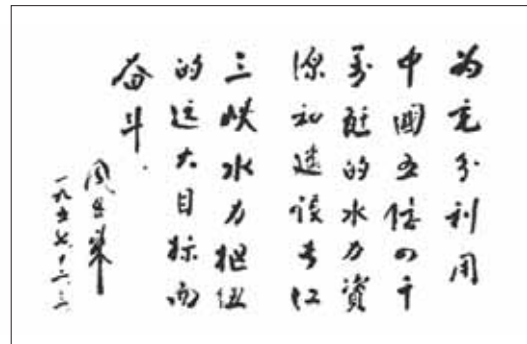 为充分利用
中國五億四千
萬瓩的水力資
源和建设长江
三峡水力枢纽
的远大目标而
奋斗.
周恩来
一九五七.十二.三